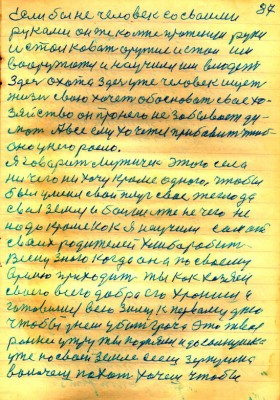 37
Если бы не человек со своими
руками он же
и стал ковать оружие и стал им
вооружать и научил им владеть
Здесь охота здесь уже человек ищет
жизнь свою хочет обосновать свое хо-
зяйство он про него не забывает ду-
мает А все ему хочется прибавить чтоб
оно у него росло.
Я говорит мужичек этого села
ничего ни хочу кроме одного, чтобы
был у меня свой плуг свое
своя земля и больше не чего не
надо кроме как я научил сам от
своих родителей хлебаробит
Всему этого когда она по своему
время приходит ты как хозяин
своего всего добра Его храниш и
готовиш всю зиму к первому дню
чтобы у меня Это твоя
рання утру ты до солнышка
уже по своей земле сееш зернушка
пахат хочет чтобы